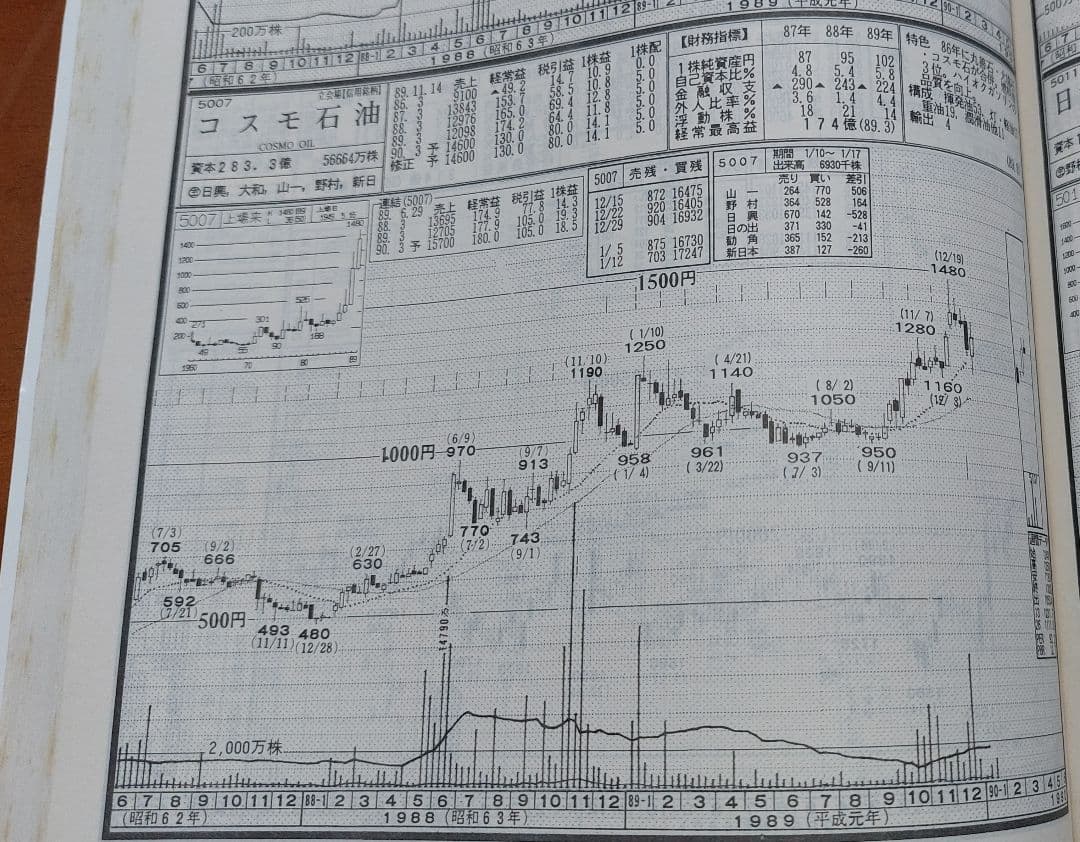 200万株
6 7 8 9 10 11 12 88-1 2 3 4 5 6 7 8 9 10 11 12 89-1 2
(昭和62年) 1988 (昭和63年) 1989 (平成元年) 90-1 2 3 4
5007 立会場【信用銘柄】
コスモ石油
COSMO OIL
資本283.3億 56664万株
日興, 大和, 山一, 野村, 新日
89.11.14 売上 経常益 税引益 1株益 1株配
86. 3 9100 ▲49.2 14.7 10.9 0.0
87. 3 13843 153.7 58.5 10.8 5.0
88. 3 12976 165.0 69.4 12.8 5.0
89. 3 12098 174.2 64.4 11.8 5.0
90. 3 予 14600 130.0 80.0 14.1 5.0
修正 予 14600 130.0 80.0 14.1 5.0
【財務指標】 87年 88年 89年
1株純資産円 87 95 102
自己資本比% 4.8 5.4 5.8
金融収支 ▲290 ▲243 ▲224
外人比率% 3.6 1.4 4.4
浮動株% 18 21 14
経常最高益 174億(89.3)
特色
構成
輸出 4
連結(5007)
89. 6.29 売上 経常益 税引益 1株益
88. 3 13695 174.9 77.8 14.3
89. 3 12705 177.9 105.0 19.3
90. 3 予 15700 180.0 105.0 18.5
5007 売残・買残
12/15 872 16475
12/22 920 16405
12/29 904 16932
1/5 875 16730
1/12 703 17247
5007 期間 1/10～ 1/17
出来高 6930千株
売り 買い 差引
山一 264 770 506
野村 364 528 164
日興 670 142 -528
日の出 371 330 -41
勧角 365 152 -213
新日本 387 127 -260
5007 上場来
1480
1400
1200
1000
800
600
400
200
273
49
301
55
90
525
188
1960 70 80 89
1500円
(12/19)
1480
(11/ 7)
1280
1160
(12/ 8)
( 1/10)
1250
(11/10)
1190
( 4/21)
1140
( 8/ 2)
1050
958
( 1/ 4)
961
( 3/22)
937
( 7/ 3)
950
( 9/11)
1000円
(6/9)
970
(9/7)
913
770
(7/2)
743
(9/1)
(7/3)
705
(9/2)
666
(2/27)
630
592
(7/21)
500円
493
(11/11)
480
(12/28)
2,000万株
6 7 8 9 10 11 12 88-1 2 3 4 5 6 7 8 9 10 11 12 89-1 2 3 4 5 6 7 8 9 10 11 12 90-1 2 3 4
(昭和62年) 1988 (昭和63年) 1989 (平成元年)
PER
PBR